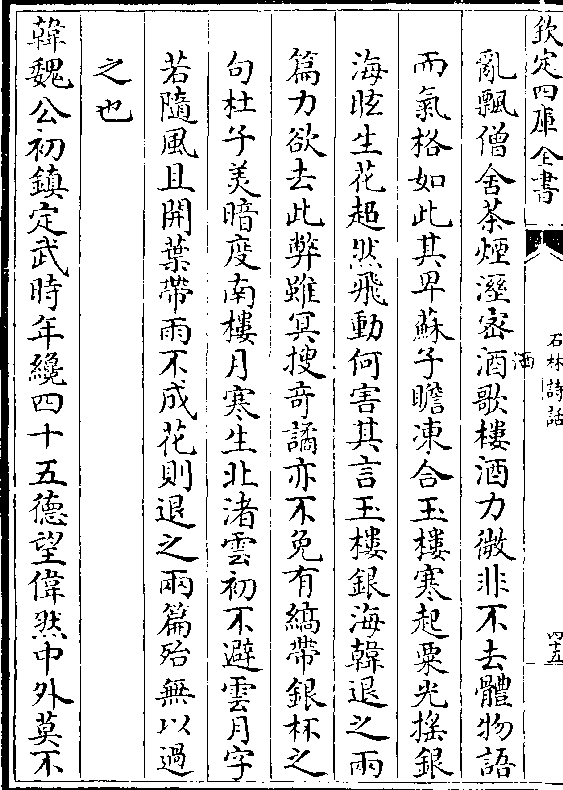 欽定四庫全書
石林詩話
四十五
亂飄僧舍茶煙溼密洒歌樓酒力微非不去體物語
而氣格如此其卑蘇子瞻凍合玉樓寒起粟光摇銀
海眩生花超然飛動何害其言玉樓銀海韓退之兩
篇力欲去此弊雖冥搜奇譎亦不免有縞帶銀杯之
句杜子美暗度南樓月寒生北渚雲初不避雲月字
若隨風且開葉帶雨不成花則退之兩篇殆無以過
之也
韓魏公初鎮定武時年纔四十五德望偉然中外莫不